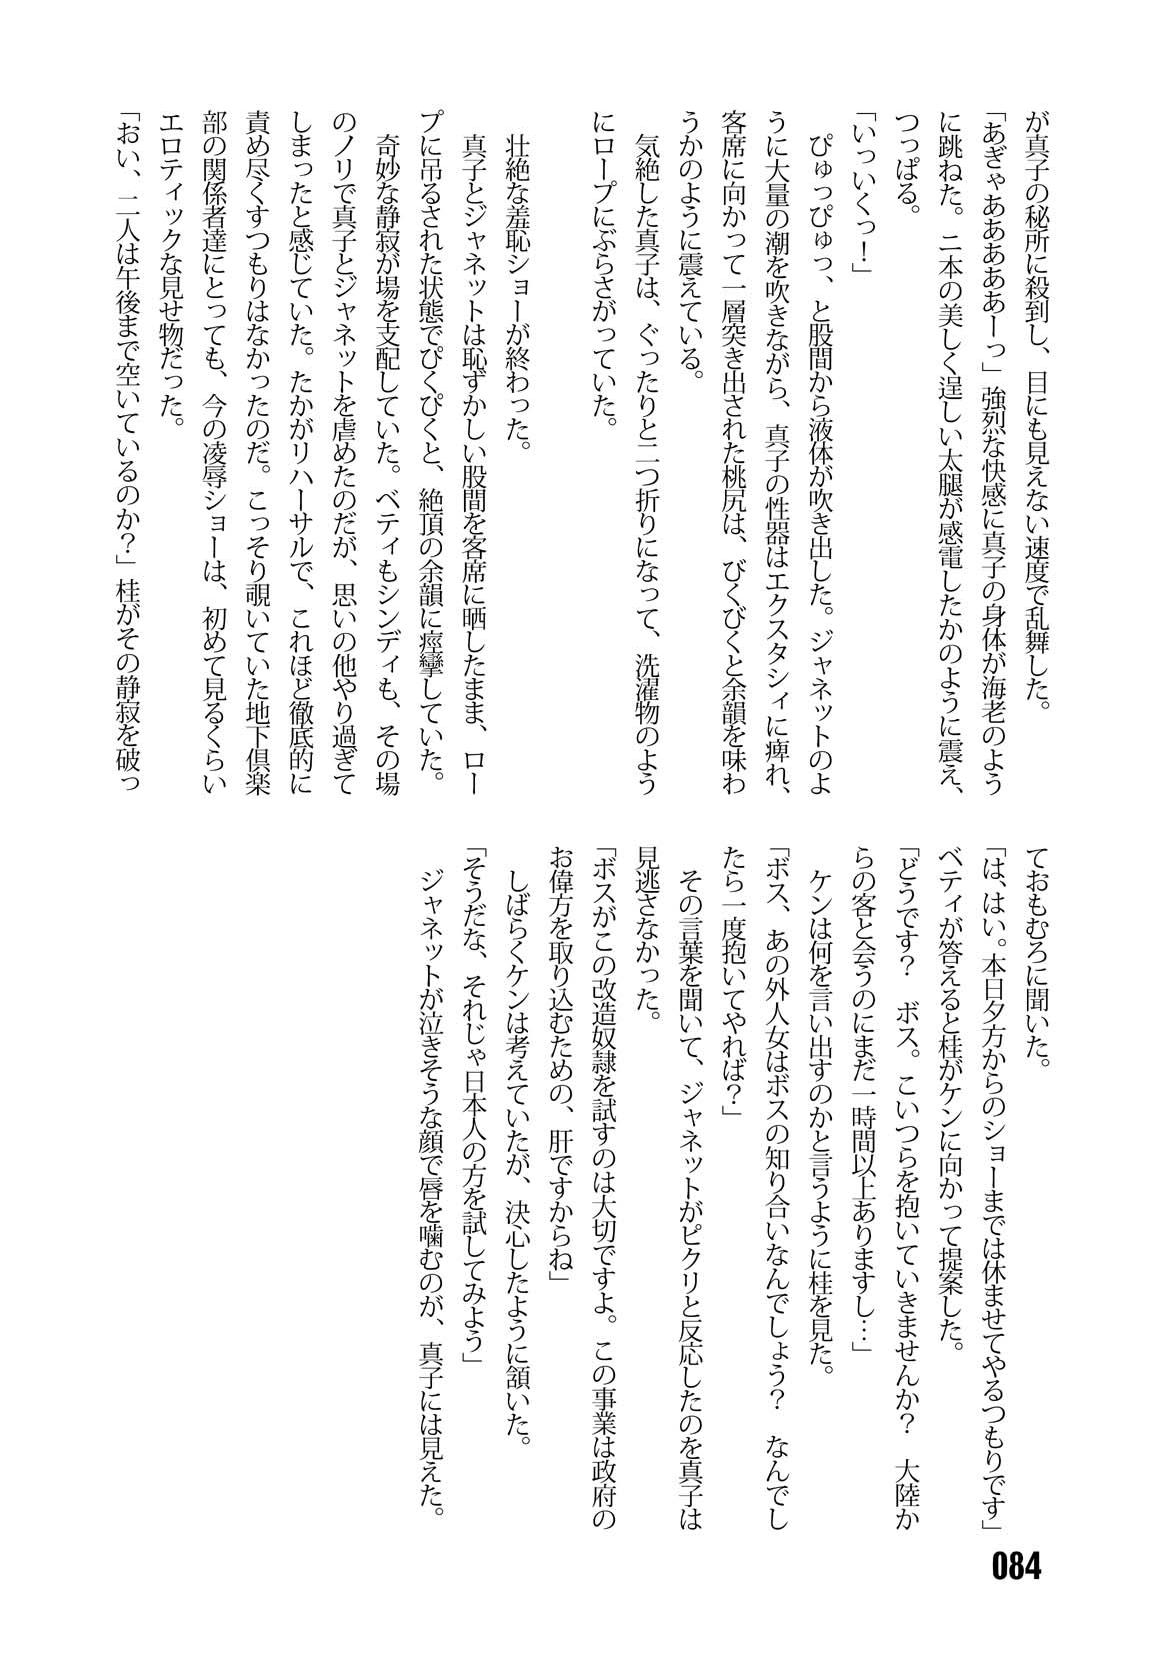 が真子の秘所に殺到し、目にも見えない速度で乱舞した。
「あぎゃあああああーっ」強烈な快感に真子の身体が海老のよう
に跳ねた。二本の美しく逞しい太腿が感電したかのように震え、
つっぱる。
「いっいくっ！」
　ぴゅっぴゅっ、と股間から液体が吹き出した。ジャネットのよ
うに大量の潮を吹きながら、真子の性器はエクスタシィに痺れ、
客席に向かって一層突き出された桃尻は、びくびくと余韻を味わ
うかのように震えている。
　気絶した真子は、ぐったりと二つ折りになって、洗濯物のよう
にロープにぶらさがっていた。
　壮絶な羞恥ショーが終わった。
　真子とジャネットは恥ずかしい股間を客席に晒したまま、ロー
プに吊るされた状態でぴくぴくと、絶頂の余韻に痙攣していた。
　奇妙な静寂が場を支配していた。ベティもシンディも、その場
のノリで真子とジャネットを虐めたのだが、思いの他やり過ぎて
しまったと感じていた。たかがリハーサルで、これほど徹底的に
責め尽くすつもりはなかったのだ。こっそり覗いていた地下倶楽
部の関係者達にとっても、今の凌辱ショーは、初めて見るくらい
エロティックな見せ物だった。
「おい、二人は午後まで空いているのか？」桂がその静寂を破っ
ておもむろに聞いた。
「は、はい。本日夕方からのショーまでは休ませてやるつもりです」
ベティが答えると桂がケンに向かって提案した。
「どうです？　ボス。こいつらを抱いていきませんか？　大陸か
らの客と会うのにまだ一時間以上ありますし…」
　ケンは何を言い出すのかと言うように桂を見た。
「ボス、あの外人女はボスの知り合いなんでしょう？　なんでし
たら一度抱いてやれば？」
　その言葉を聞いて、ジャネットがピクリと反応したのを真子は
見逃さなかった。
「ボスがこの改造奴隷を試すのは大切ですよ。この事業は政府の
お偉方を取り込むための、肝ですからね」
　しばらくケンは考えていたが、決心したように頷いた。
「そうだな、それじゃ日本人の方を試してみよう」
　ジャネットが泣きそうな顔で唇を噛むのが、真子には見えた。
084